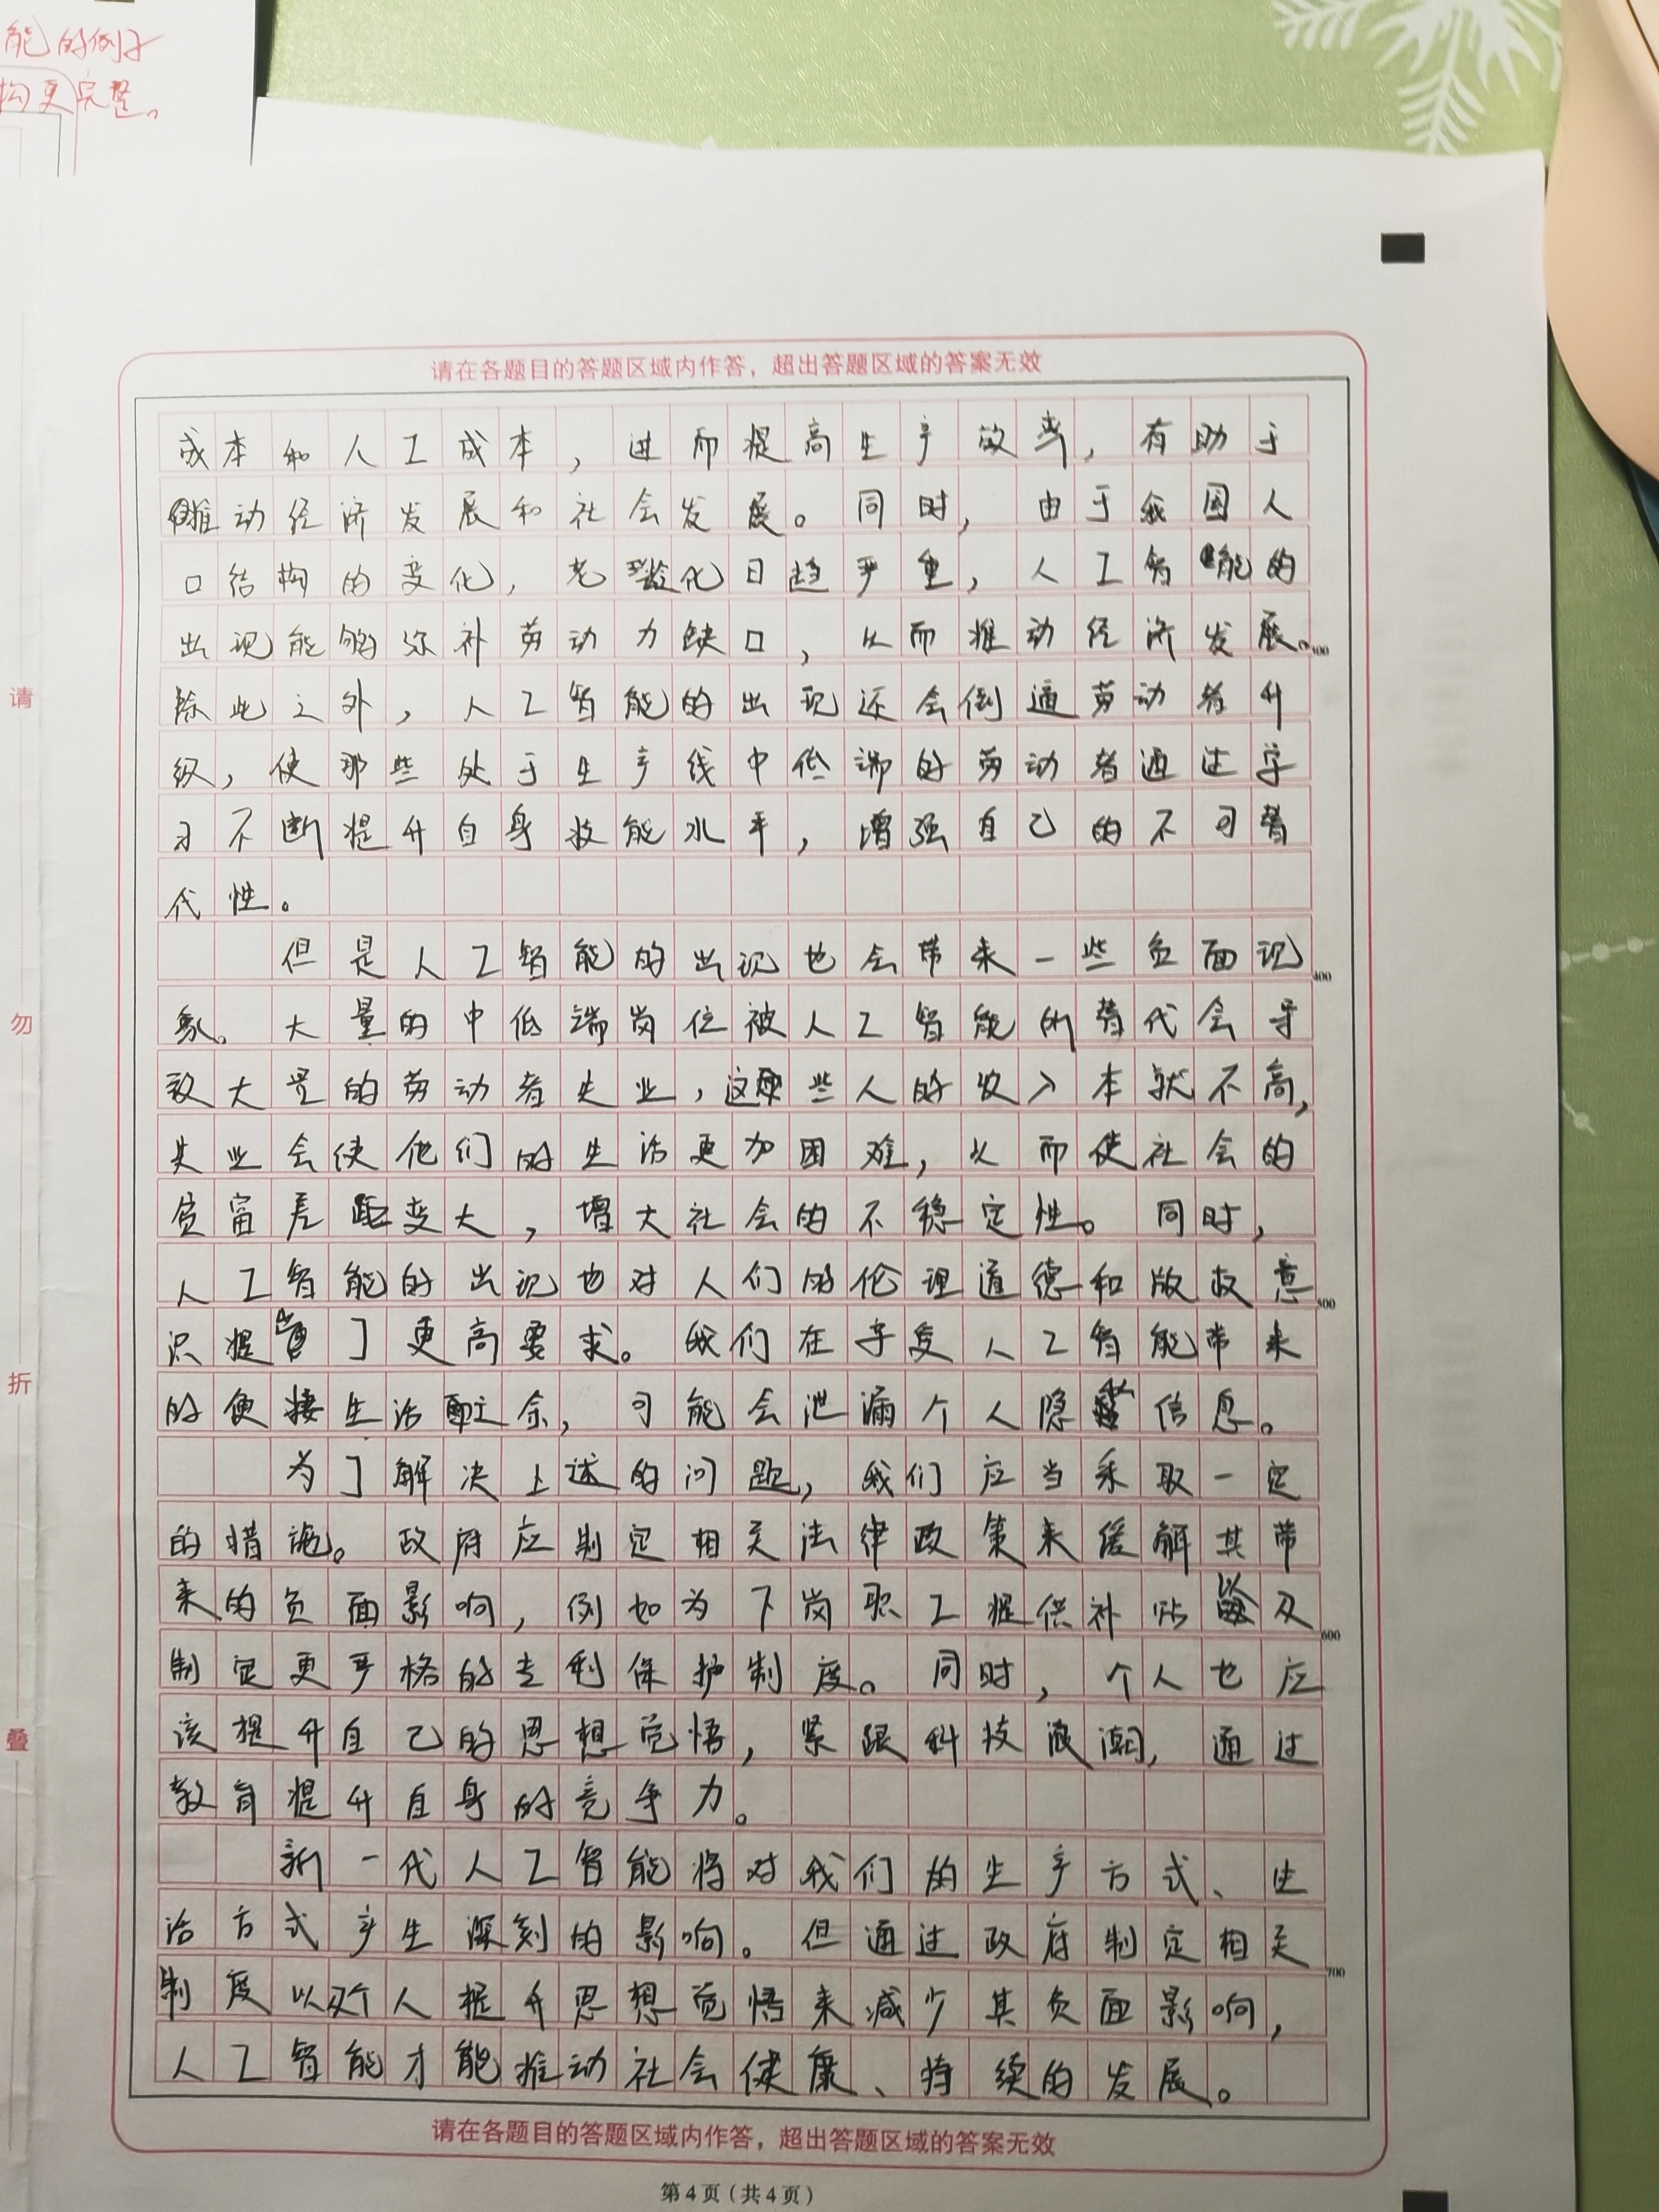 能的例子
构更完整。
请在各题目的答题区域内作答，超出答题区域的答案无效
成本和人工成本，进而提高生产效率，有助于
推动经济发展和社会发展。同时，由于我国人
口结构的变化，老龄化日趋严重，人工智能的
出现能够弥补劳动力缺口，从而推动经济发展。
300
除此之外，人工智能的出现还会倒逼劳动者升
级，使那些处于生产线中低端的劳动者通过学
习不断提升自身技能水平，增强自己的不可替
代性。
但是人工智能的出现也会带来一些负面现
400
象。大量的中低端岗位被人工智能的替代会导
致大量的劳动者失业，这些人的收入本就不高，
失业会使他们的生活更加困难，从而使社会的
贫富差距变大，增大社会的不稳定性。同时，
人工智能的出现也对人们的伦理道德和版权意
500
识提了更高要求。我们在享受人工智能带来
的便捷生活之余，可能会泄漏个人隐私信息。
为了解决上述的问题，我们应当采取一定
的措施。政府应制定相关法律政策来缓解其带
来的负面影响，例如为下岗职工提供补贴以及
600
制定更严格的专利保护制度。同时，个人也应
该提升自己的思想觉悟，紧跟科技浪潮，通过
教育提升自身的竞争力。
新一代人工智能将对我们的生产方式、生
活方式产生深刻的影响。但通过政府制定相关
700
制度以及个人提升思想觉悟来减少其负面影响，
人工智能才能推动社会健康、持续的发展。
请在各题目的答题区域内作答，超出答题区域的答案无效
第4页（共4页）
请
勿
折
叠